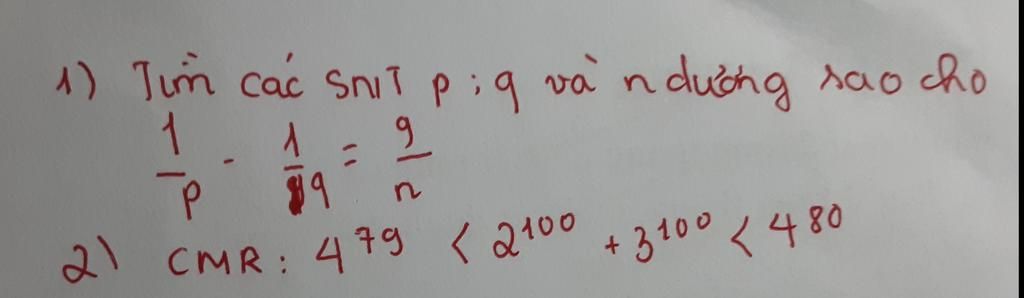 1) Tìm các SNT p; q và n dương sao cho
1/p - 1/q = 9/n
2) CMR: 4^79 < 2^100 + 3^100 < 4^80